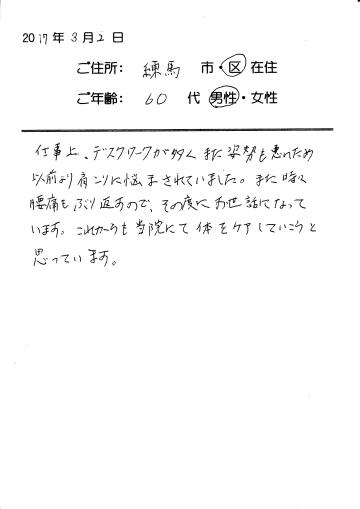 2017年3月2日
ご住所: 練馬 市・区在住
ご年齢: 60 代 男性・女性
仕事上、デスクワークが多く また姿勢も悪いため
以前より肩こりに悩まされていました。また時々
腰痛もぶり返すので、その度にお世話になって
います。これからも当院にて体をケアしていこうと
思っています。